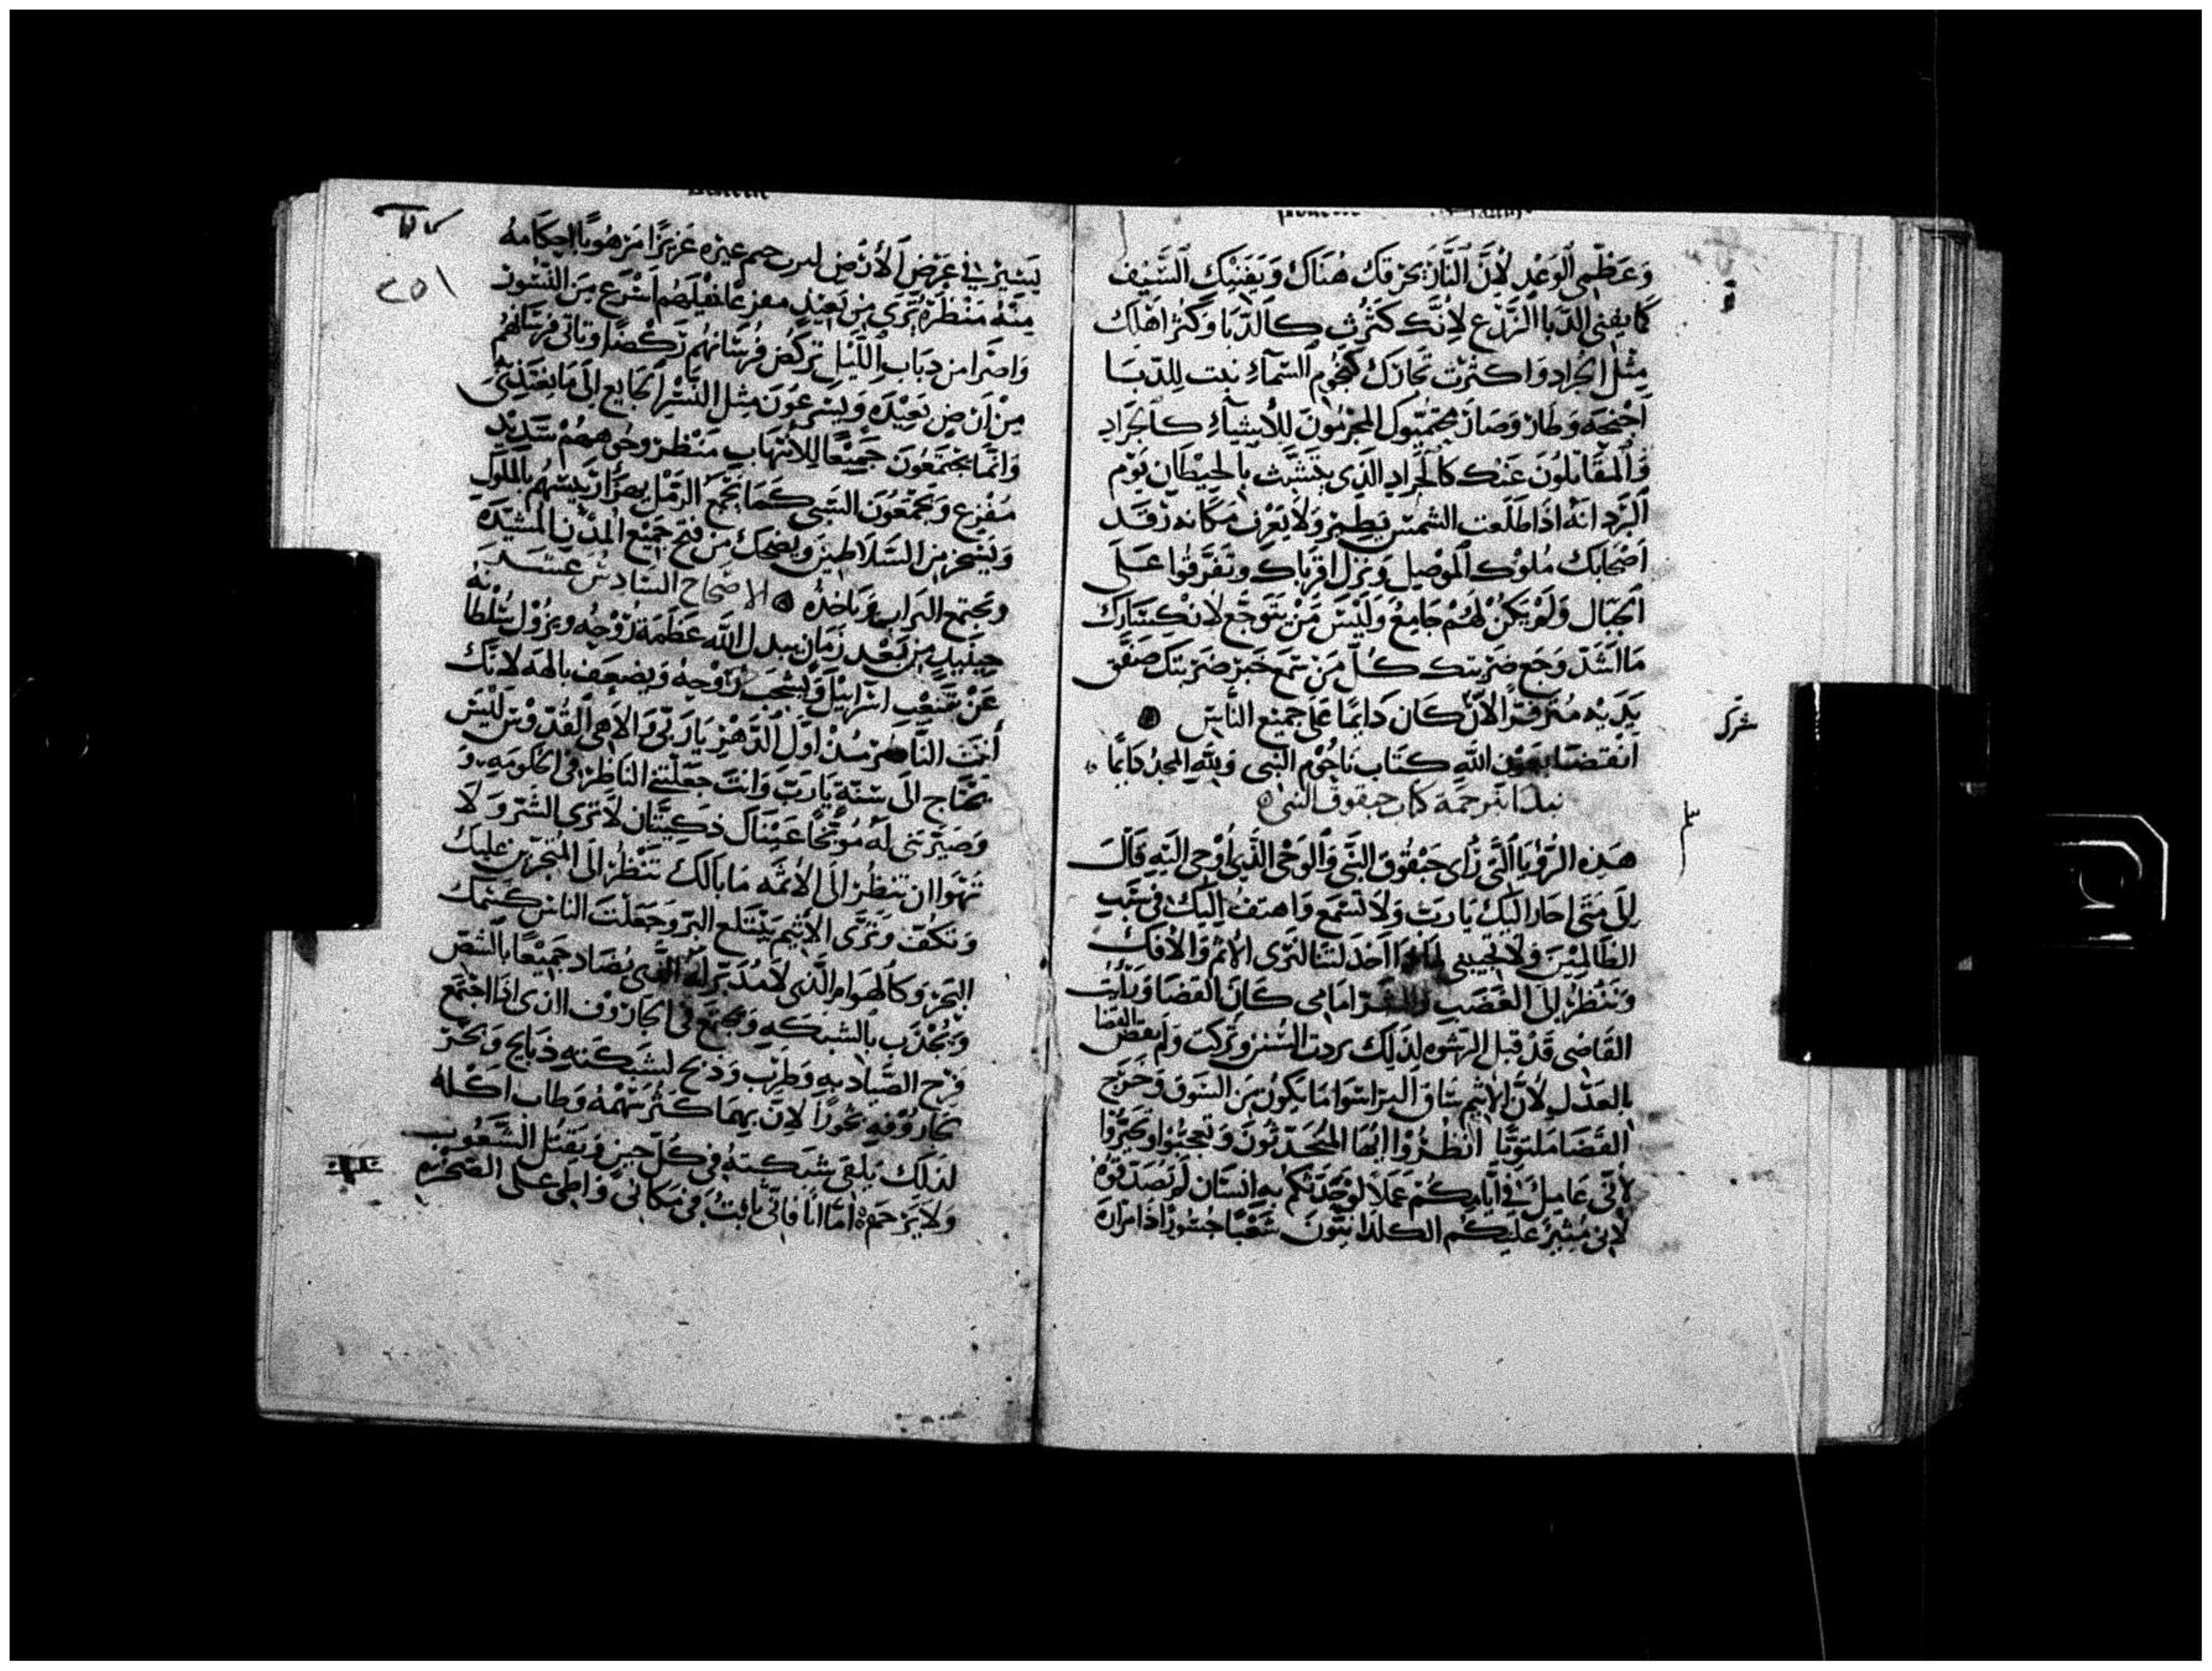 وَعَظّمى الوَعْد لأنَّ النَّارَ تحرقك هُنَاكَ وَيَفنيكِ السَّيف
كَما يفنى الدَّبا الزَّرْع لأنَّكِ كَثُرْتِ كالدَّبَا وَكَثر اهْلِك
مثْل الجَراد وَاكثرْتِ تجارَك كنجُوم السّمآءِ نبت للدّبَا
اجْنحَة وَطَار وَصَارَ المجرمُونَ للأَشيآءِ كالجَرَادِ
وَالمقَاتلُونَ عَنك كالجَرادِ الذى يتشبَّث بالحيطَان يَوْم
البَرد انَّه اذا طَلَعت الشمسُ يَطِير وَلا يَعْرف مَكَانه رَقَد
اصَحابك مُلوْك الموْصِل وَنزل اقرباك وَتفَرَّقوا عَلَى
الجبَال وَلَمْ يَكنْ لهُم جَامِعٌ وَليْسَ مَنْ يتَوَجّع لانكسَارك
مَا اشَدّ وَجَع ضرْبتك كلّ مَنْ سَمعَ خبَر ضرْبتك صَفّق
يَدَيْه لأنّ كَان دَايمًا عَلَى جميْع النَّاس
انقضَا بعَوْن الله كتَاب ناحُوْم النَّبى وَللهِ المجدُ دَايمًا
نبدَا بترجمَة كتاب حبقوق النبى
هَذِه الرؤْيَا الّتى رَأى حَبْقُوق النَّبى وَالوَحْى الذّى أوْحى اليَه قَالَ
إلى مَتَى اجار اليْك يَا ربّ وَلا تَسْمع وَاهتف اليْك فى
الظَالِميْنَ وَلا تجيبنى لترى الاثم وَالأفك
وَننْظُر إلى الغَضَبِ امَامى كَانَ القضَا وَ
القَاضى قَدْ قبل الرشوَه لذَلِكَ بردت السُّنن وَتُركت وَلم يقض القضا
بالعَدْل لأنَّ الاثيم سَاقَ البرّ اسْوا مَا يَكُون مِنَ السَّوق وَخَرَج
القَضَا مُلتويًا انظُرُوا ايُّها المُتحَدّثُونَ وَتعجبُوا وَتحَيَّرُوا
لأنّى عَامِلٌ فى أيّامِكُمْ عَمَلاً لوْ حَدّثكم بهِ انسَان لَمْ تصَدّقوهُ
لأنى مُثيرٌ عَليكم الكلدَانيّونَ شَعْبًا جسُورًا
١٥٢
يَسِيْر فى عَرْض الأَرْضِ عَزيْزًا مَرْهُوْبًا احكَامهُ
مِنْهُ مَنْظَرَهُ يُرَى مِنْ بَعِيْدٍ اسْرَع مِنَ النُّسُور
وَاضرَا من ذيَاب اللَّيْل تَركُض فُرسَانهُم رَكْضًا وَتاتى فُرسَانهُم
مِنْ ارْضٍ بَعِيْدَه وَيسْرعُوْنَ مثل النَّسْر الجَايع إلى
وَانَّما يجْتمعُونَ جَمِيْعًا للأنتهَاب مَنْظر وجُوههمْ شَدِيْد
مفْزع وَيجْمَعُونَ السَّبى كَمَا يجْمَع الرَّمْل بالملُوك
وَيَسْخر مِنَ السَّلَاطينَ وَيَضحك مِنْ جَميْع المُدُن المُشيّدَه
وَيجتمع التراب وَيَاخذُه الاصحاح السَّادسُ عَشر
حِيْنَيذٍ مِنْ بَعْد زَمَان يبدل الله عَظمَة رُوْحِه وَيزُوْل سُلْطَانه
عَنْ شَعْبِ اسْرَائيْل وَيضعَف بالهَه لأنّك
أَنتَ مُنْذ اوّل الدَّهْر يَا ربّى وَالاهى القُدُّوْسُ ليْسَ
يحْتَاج الى سُنّة يَا ربّ وَانتَ جَعَلْتنى الناظر فى الحكُومَه وَ
وَصَيّرتنى لَهُ مُوبِّخًا عَيْنَاكَ ذكيّتَان لا تَرى الشَّرَّ وَلا
تهْوَا ان تنظُر الَى الأثمَه مَا بَالكَ تنْظُر الَى
وَتكفّ وَترَى الأَثيْم يَبْتلع البَر وَجعَلْت النَّاس كسَمَك
البَحْر وَكَالهوَام الذى لا مُدَبّر لَهُ يُصَاد جَمِيْعًا بالشّصّ
وَيُجْذب بالشبكه وَ فى الجاروْف الذى اذَا اجتمَع
فرح الصَّيَّاد بهِ وَطرب وَذبَح لشبَكته ذبايح وَبخّر
جَاروْفه بخُوْرًا لأنَّ بهمَا كثر سَهْمَهُ وَطاب اكلهُ
لذَلكَ يلقى شبكتهُ فى كُلّ حِين وَيقتُل الشُّعُوب
وَلا يَرْحَم امّا انا فانّى ثابتٌ فى مَكَانى وَاطى على الصَّخرة